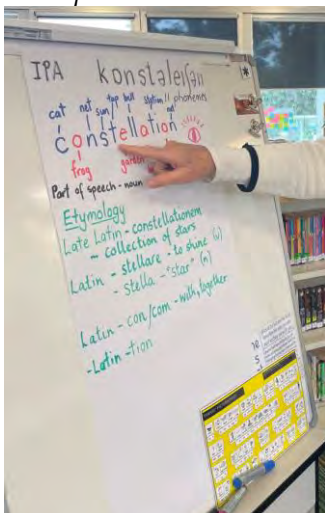 IPA konstəleiʃən
cat net sun top bell station net 11 phonemes
constellation
frog garden
Part of speech - noun
Etymology
Late Latin - constellationem
- collection of stars
Latin - stellare - to shine (v)
- stella - "star" (n)
Latin - con/com - with, together
- Latin - tion